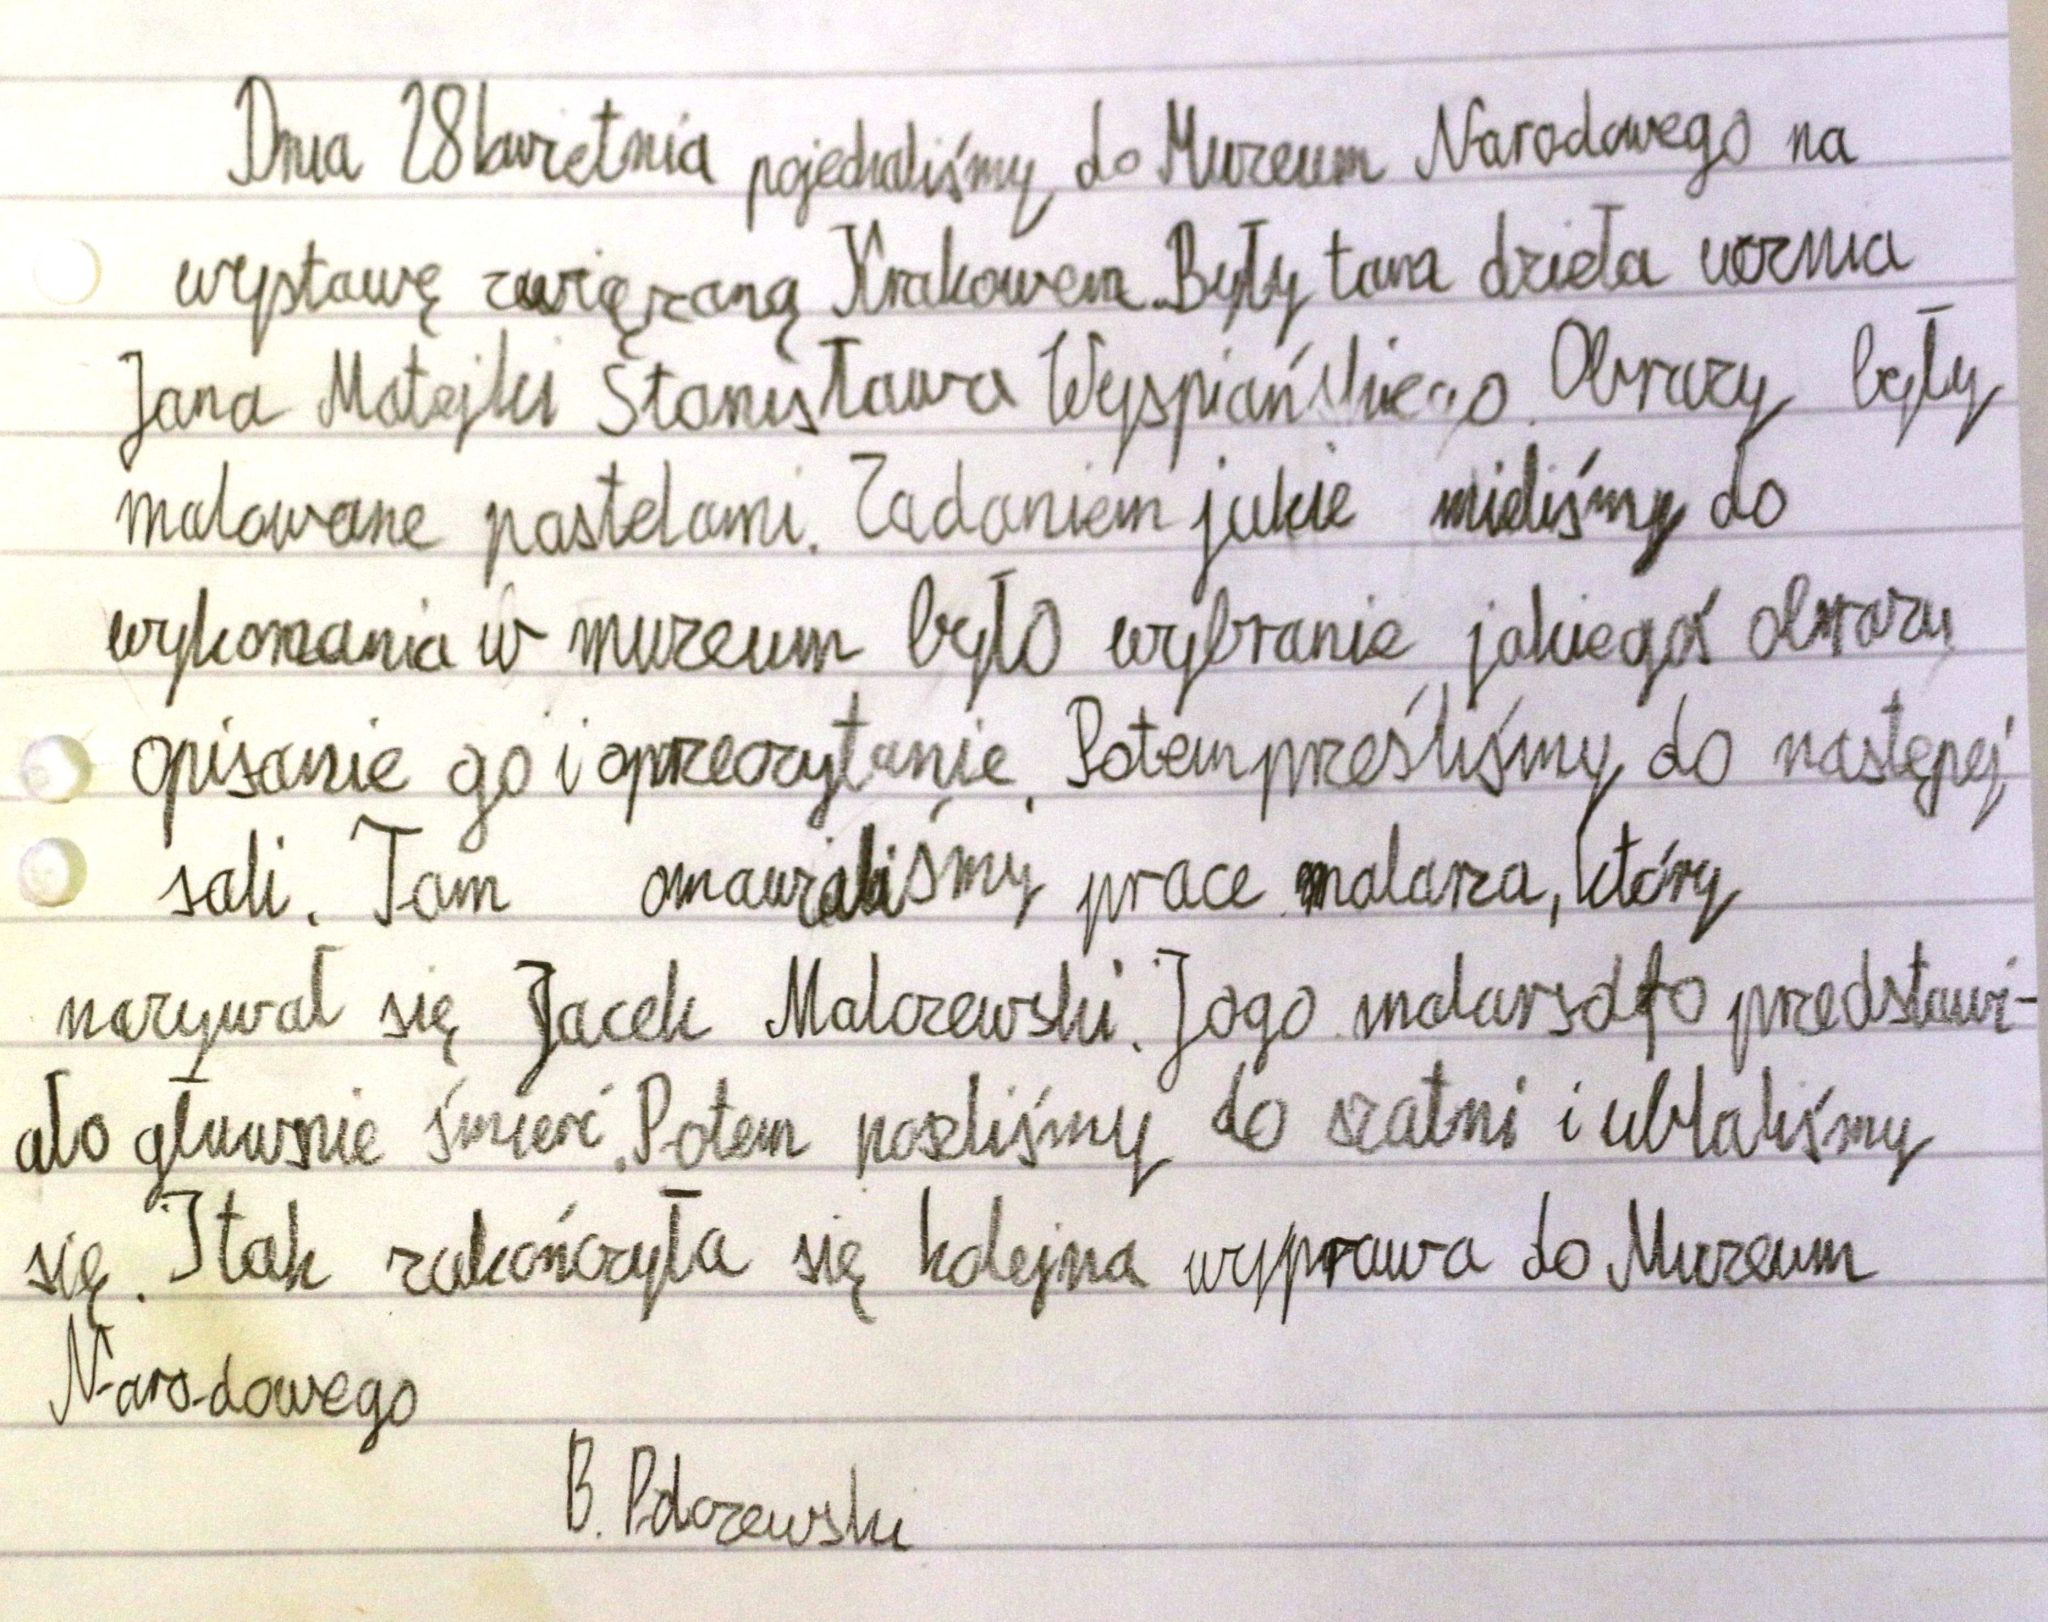 Dnia 28 kwietnia pojechaliśmy do Muzeum Narodowego na
wystawę związaną Krakowem. Były tam dzieła ucznia
Jana Matejki Stanisława Wyspiańskiego. Obrazy były
malowane pastelami. Zadaniem jakie mieliśmy do
wykonania w muzeum było wybranie jakiegoś obrazu
opisanie go i oprzeczytanie. Potem prześliśmy do następej
sali. Tam omawialiśmy prace malarza, który
nazywał się Jacek Malczewski. Jogo malarsdło przedstawi-
ało głuwnie śmierć. Potem poszliśmy do szatni i ubłaliśmy
się. I tak zakończyła się kolejna wyprawa do Muzeum
Narodowego
B. Polczewski